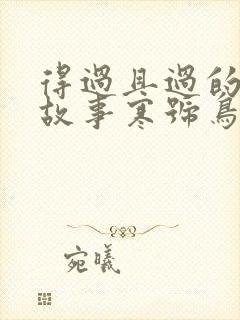 得過且過的
故事寒號鳥
宛曦